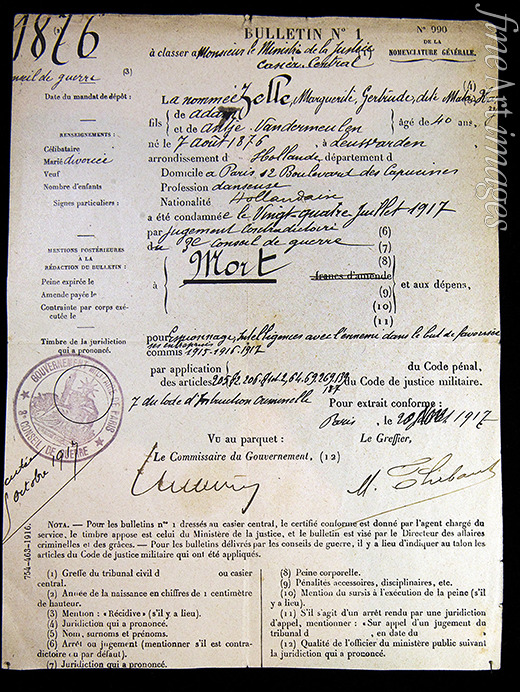 1876
BULLETIN N° 1
N° 990
DE LA
NOMENCLATURE GÉNÉRALE.
à classer à Monsieur le Ministre de la Justice
(1)
Casier Central
de guerre
(3)
(4)
Date du mandat de dépôt :
La nommée Zelle, Marguerite, Gertrude, dite Mata
de adam
fils et de Antje Vandermeulen âgé de 40 ans,
RENSEIGNEMENTS :
né le 7 août 1876 à Leuwarden
Célibataire
arrondissement d Hollande département d
Marié divorcée
Veuf
Domicile à Paris 12 Boulevard des Capucines
Nombre d'enfants
Profession danseuse
Signes particuliers :
Nationalité Hollandaise
a été condamnée le Vingt-quatre Juillet 1917
par jugement Contradictoire (6)
du 3e Conseil de guerre (7)
MENTIONS POSTÉRIEURES
A LA
RÉDACTION DU BULLETIN :
à Mort
(8)
francs d'amende
(9)
et aux dépens,
(10)
(11)
Peine expirée le
Amende payée le
Contrainte par corps exé-
cutée le
Timbre de la juridiction
qui a prononcé.
pour Espionnage, Intelligences avec l'ennemi dans le but de favoriser
ses entreprises
commis 1915-1916-1917
par application
du Code pénal,
des articles 205 206 2, 64, 69, 269, 139, du Code de justice militaire.
187
7 du Code d'Instruction Criminelle
Pour extrait conforme :
Paris, le 20 1917
GOUVERNEMENT MILITAIRE DE PARIS
CONSEIL DE GUERRE
octobre 1917
VU AU PARQUET :
Le Greffier,
Le Commissaire du Gouvernement, (12)
734-463-1916.
NOTA. — Pour les bulletins nos 1 dressés au casier central, le certifié conforme est donné par l'agent chargé du
service, le timbre apposé est celui du Ministère de la justice, et le bulletin est visé par le Directeur des affaires
criminelles et des grâces. — Pour les bulletins délivrés par les conseils de guerre, il y a lieu d'indiquer au talon les
articles du Code de justice militaire qui ont été appliqués.
(1) Greffe du tribunal civil d ou casier
central.
(2) Année de la naissance en chiffres de 1 centimètre
de hauteur.
(3) Mention : « Récidive » (s'il y a lieu).
(4) Juridiction qui a prononcé.
(5) Nom, surnoms et prénoms.
(6) Arrêt ou jugement (mentionner s'il est contra-
dictoire ou par défaut).
(7) Juridiction qui a prononcé.
(8) Peine corporelle.
(9) Pénalités accessoires, disciplinaires, etc.
(10) Mention du sursis à l'exécution de la peine (s'il
y a lieu).
(11) S'il s'agit d'un arrêt rendu par une juridiction
d'appel, mentionner : « Sur appel d'un jugement du
tribunal d , en date du
(12) Qualité de l'officier du ministère public suivant
la juridiction qui a prononcé.
fine art images